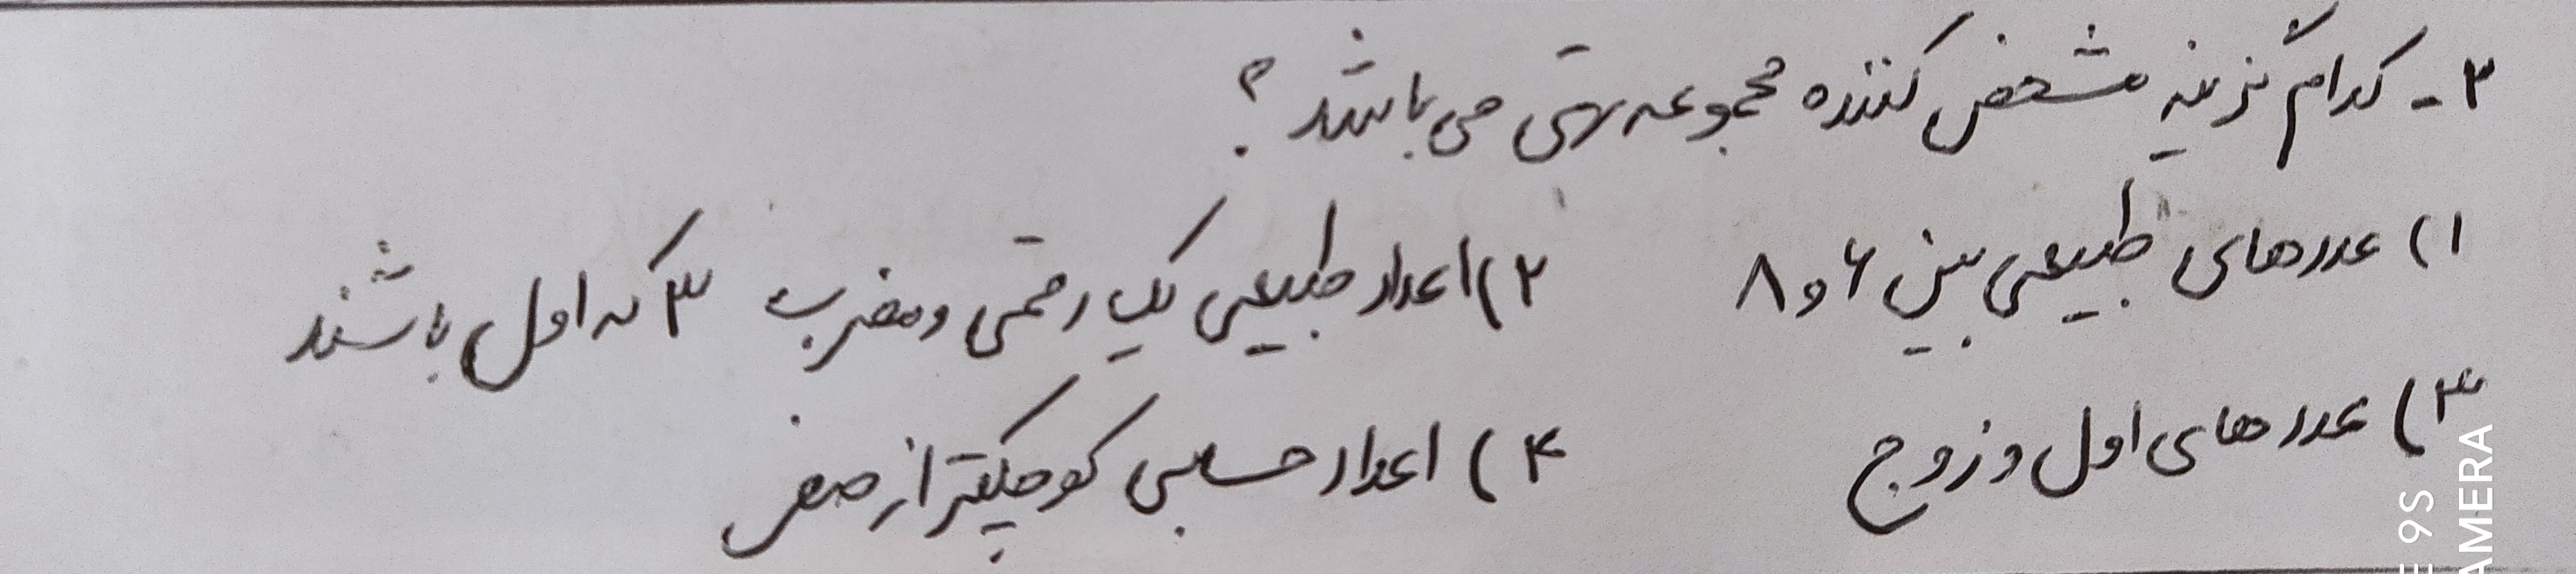 ۲- کدام گزینه مشخص کننده مجموعه تهی می باشد؟
۱) عددهای طبیعی بین ۶ و ۸ ۲) اعداد طبیعی یک رقمی و مضرب ۳ که اول باشند
۳) عددهای اول و زوج ۴) اعداد حسابی کوچیکتر از صفر